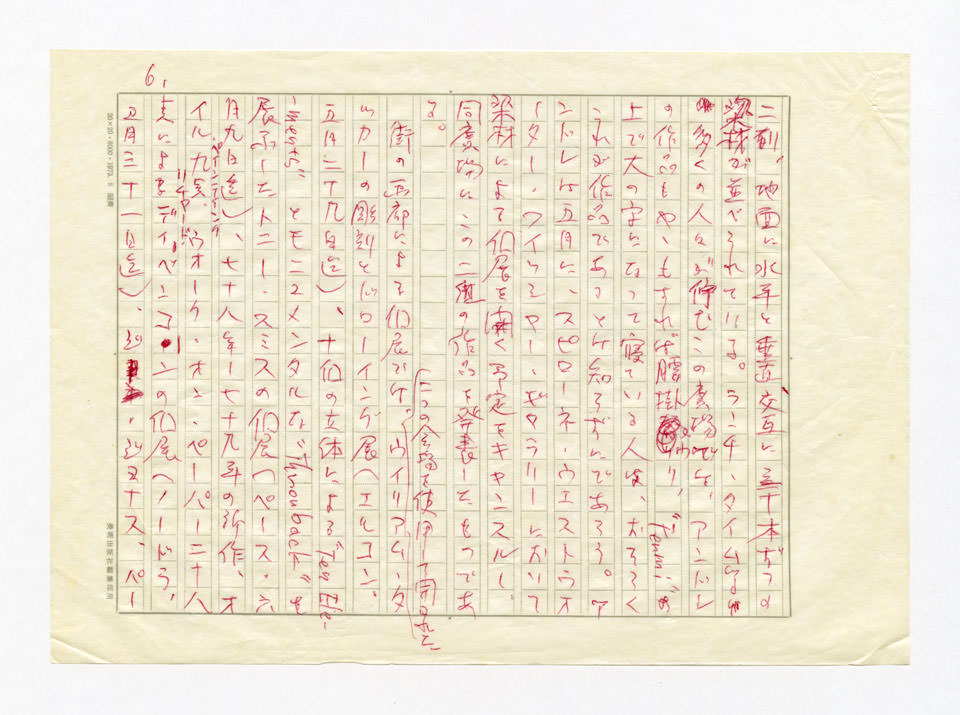 6.
二列、地面に水平と垂直交互に三十本ずつの
梁材が並べられている。ランチ・タイムなど
多くの人々が佇むこの広場では、アンドレ
の作品もややもすれば腰掛けとなり、"Fermi"の
上で大の字になって寝ている人は、おそらく
これが作品であるとは知らずにであろう。ア
ンドレは五月に、スピローネ・ウエストウオ
ーター・フィッシャー・ギャラリーにおいて
梁材によって個展を開く予定をキャンスルし、
同広場にこの二組の作品を発表したものであ
る。
街の画廊による個展では、ウイリアム・タ
二つの会場を使用して開かれた
ッカーの彫刻とドローイング展(エルコン、
五月二十九日迄)、十個の立体による"Ten Ele-
ments"とモニュメンタルな"Throwback"を
展示したトニー・スミスの個展(ペース・六
月九日迄)、七十八年−七十九年の新作、オ
イル九点、ペインティング ウオーク・オン・ペーパー二十八
点によるリチャード・ディーベンコーンの個展(ノードラー、
五月三十一日迄)、
20×20